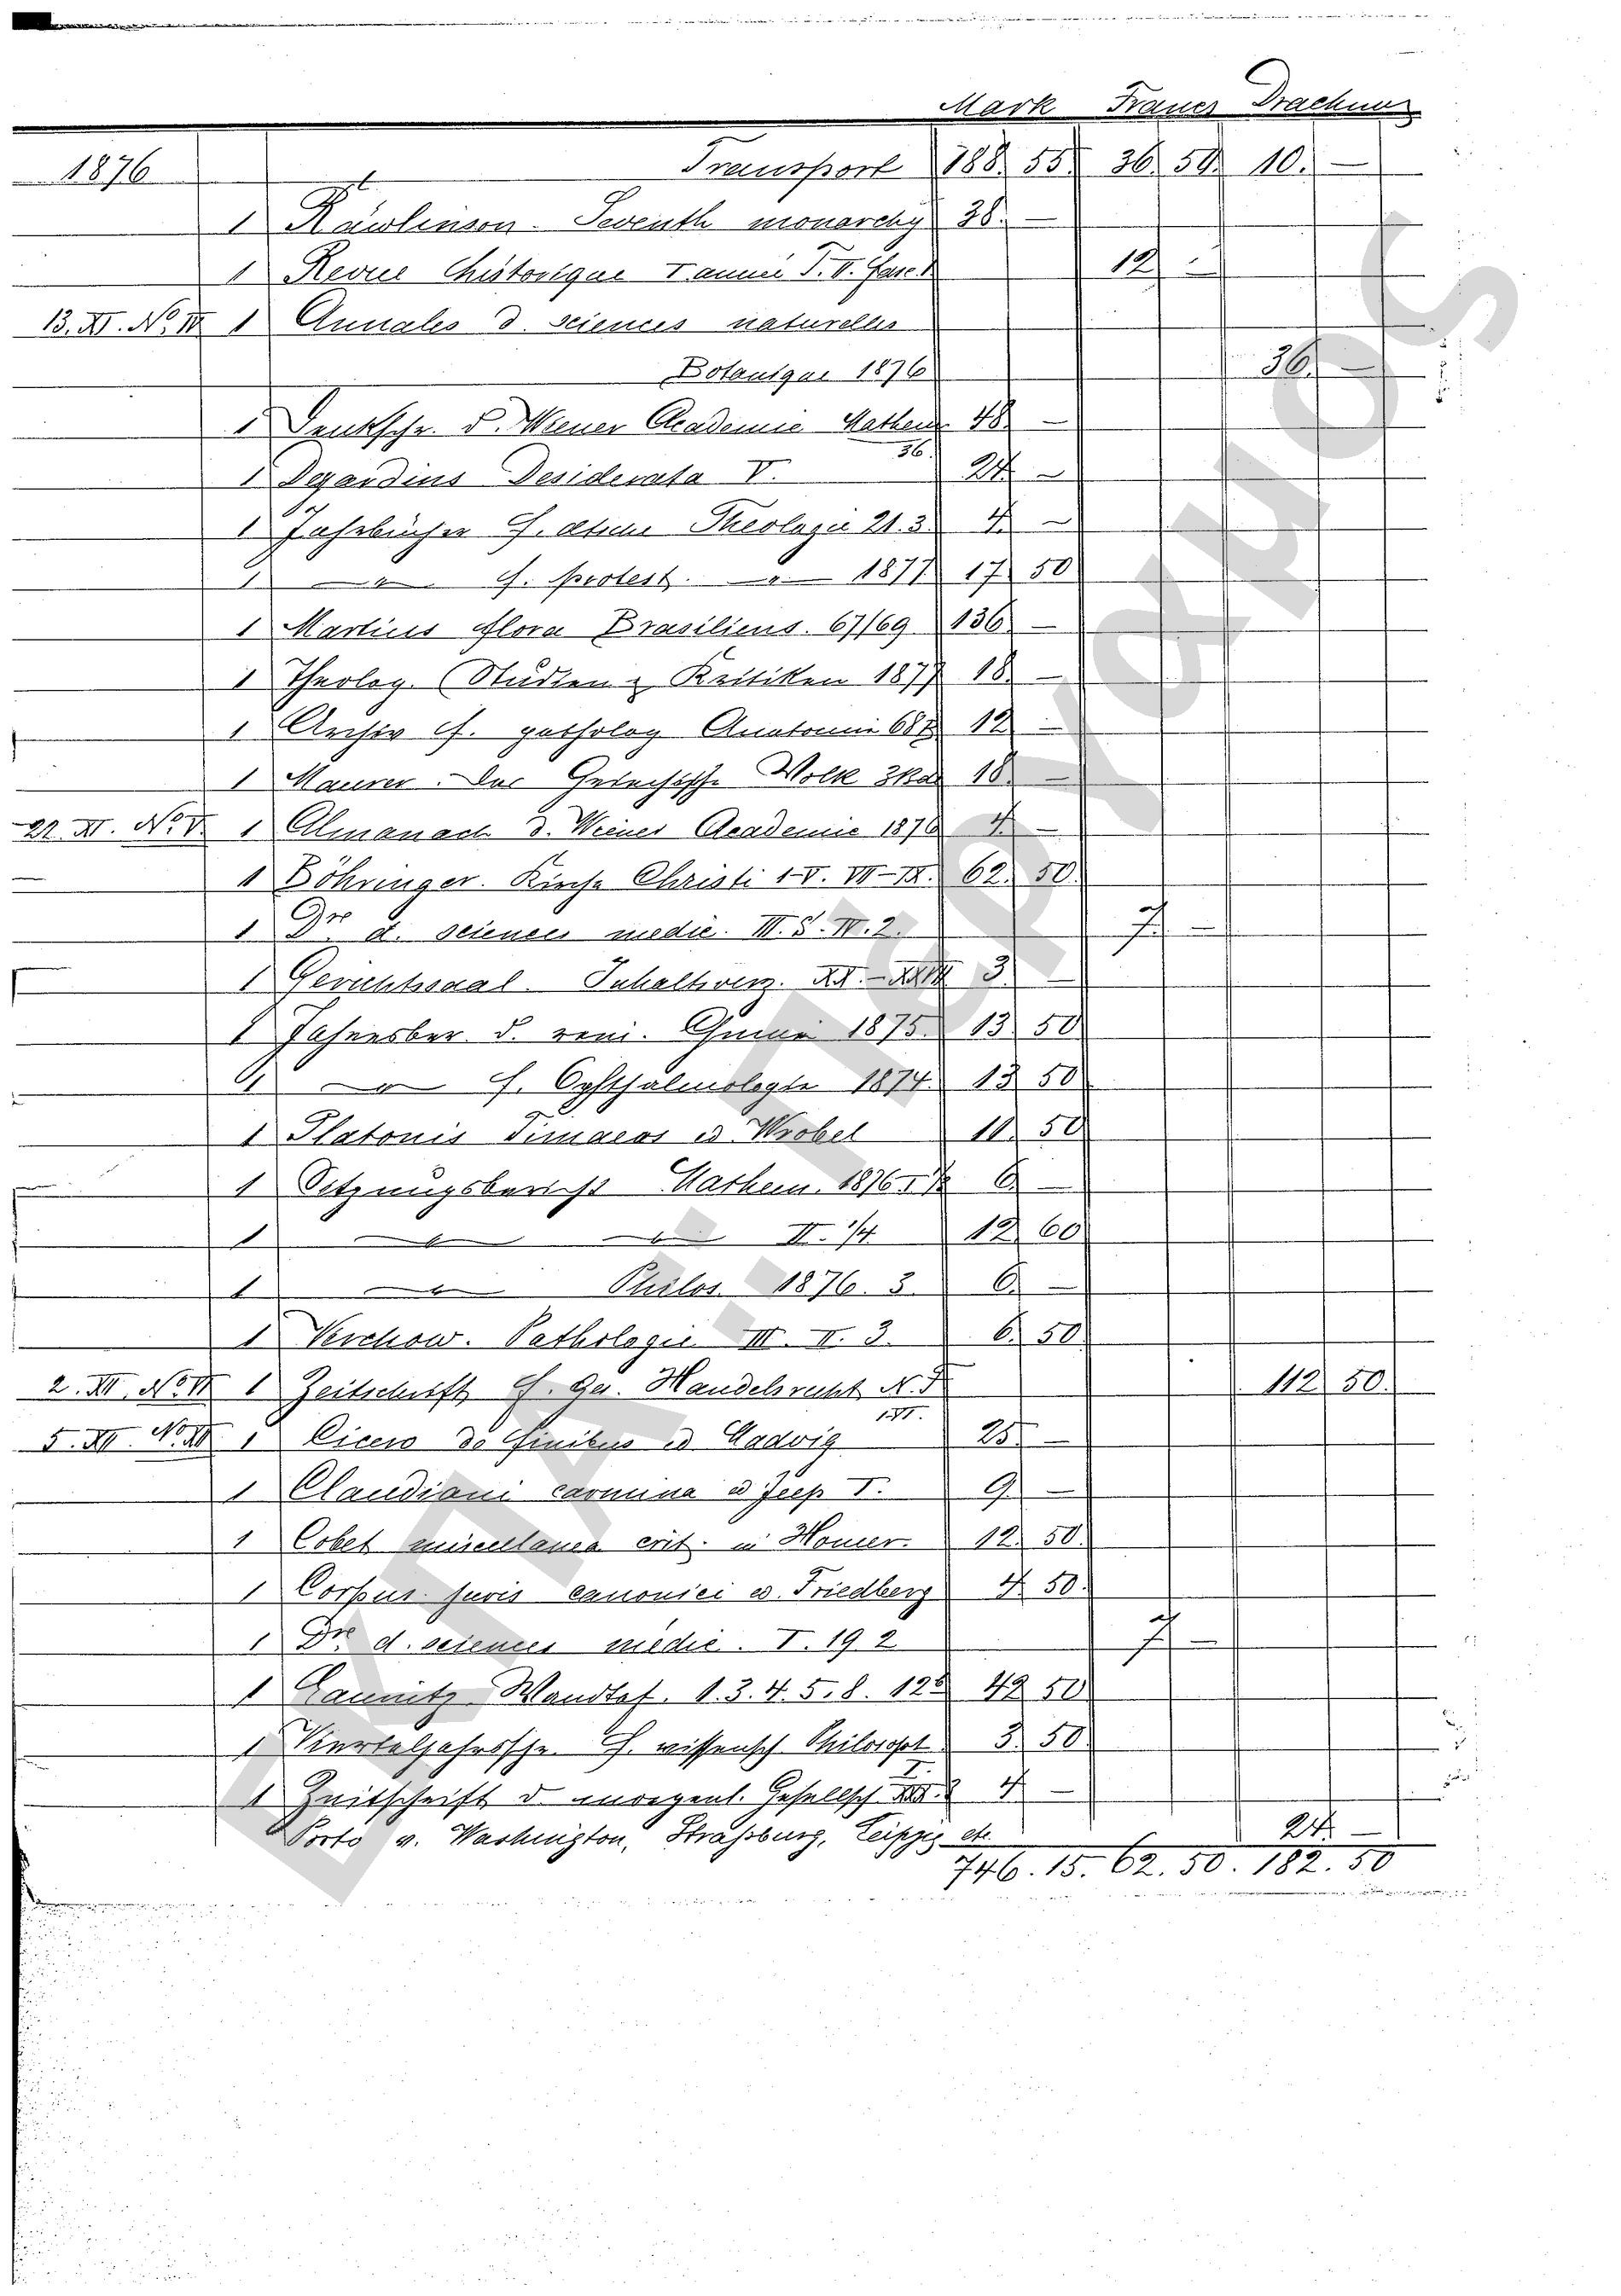 Mark Francs Drachmen
1876 Transport 188. 55 36. 50. 10. —
1 Rawlinson. Seventh monarchy 38. —
1 Revue historique I année T. II. fasc. 1 12 —
13. XI. No. IV 1 Annales d. sciences naturelles
Botanique 1876 36. —
1 Denkschr. d. Wiener Academie Mathem. 48 —
36.
1 Desjardins Desiderata V. 24. —
1 Jahrbücher f. Theologie 21. 3 4. —
1 —„— f. protest. —„— 1877 17. 50
1 Martius flora Brasiliens. 67/69 136 —
1 Theolog. Studien & Kritiken 1877 18. —
1 Archiv f. patholog Anatomie 68 12 —
1 Maurer. Das Griechische Volk 3 18. —
21. XI. No. V. 1 Almanach d. Wiener Academie 1876 4. —
1 Böhringer. Kirche Christi 1-V. VII-IX. 62. 50.
1 Dre d. sciences médic. III. 5. IV. 2. 7. —
1 Gerichtssaal. Inhaltsverz. XX.- 3. —
1 Jahresber. d. rein. Chemie 1875. 13. 50
1 —„— f. Ophthalmologie 1874. 13 50
1 Platonis Timaeos ed Wrobel 10. 50
1 Sitzungsbericht Mathem. 1876 I 6. —
1 —„— —„— II. 1/4. 12. 60
1 —„— Philos. 1876. 3. 6. —
1 Virchow. Pathologie III. II. 3. 6. 50
2. XII. No. VI 1 Zeitschrift f. ges. Handelsrecht N. F. 112. 50.
I-VI.
5. XII. No. VII 1 Cicero de finibus ed Madvig 25. —
1 Claudiani carmina ed Jeep I. 9. —
1 Cobet miscellanea crit. in Homer. 12. 50.
1 Corpus juris canonici ed. Friedberg 4. 50.
1 Dre d. sciences médic. I. 19. 2 7. —
1 Launitz Wandtaf. 1. 3. 4. 5. 8. 12 42 50
1 Vierteljahrsschr. f. wissensch. Philosoph. 3. 50
1 Zeitschrift d morgenl. Gesellsch. 4. —
Porto v. Washington, Strassburg, Leipzig etc. 24. —
746. 15. 62. 50. 182. 50